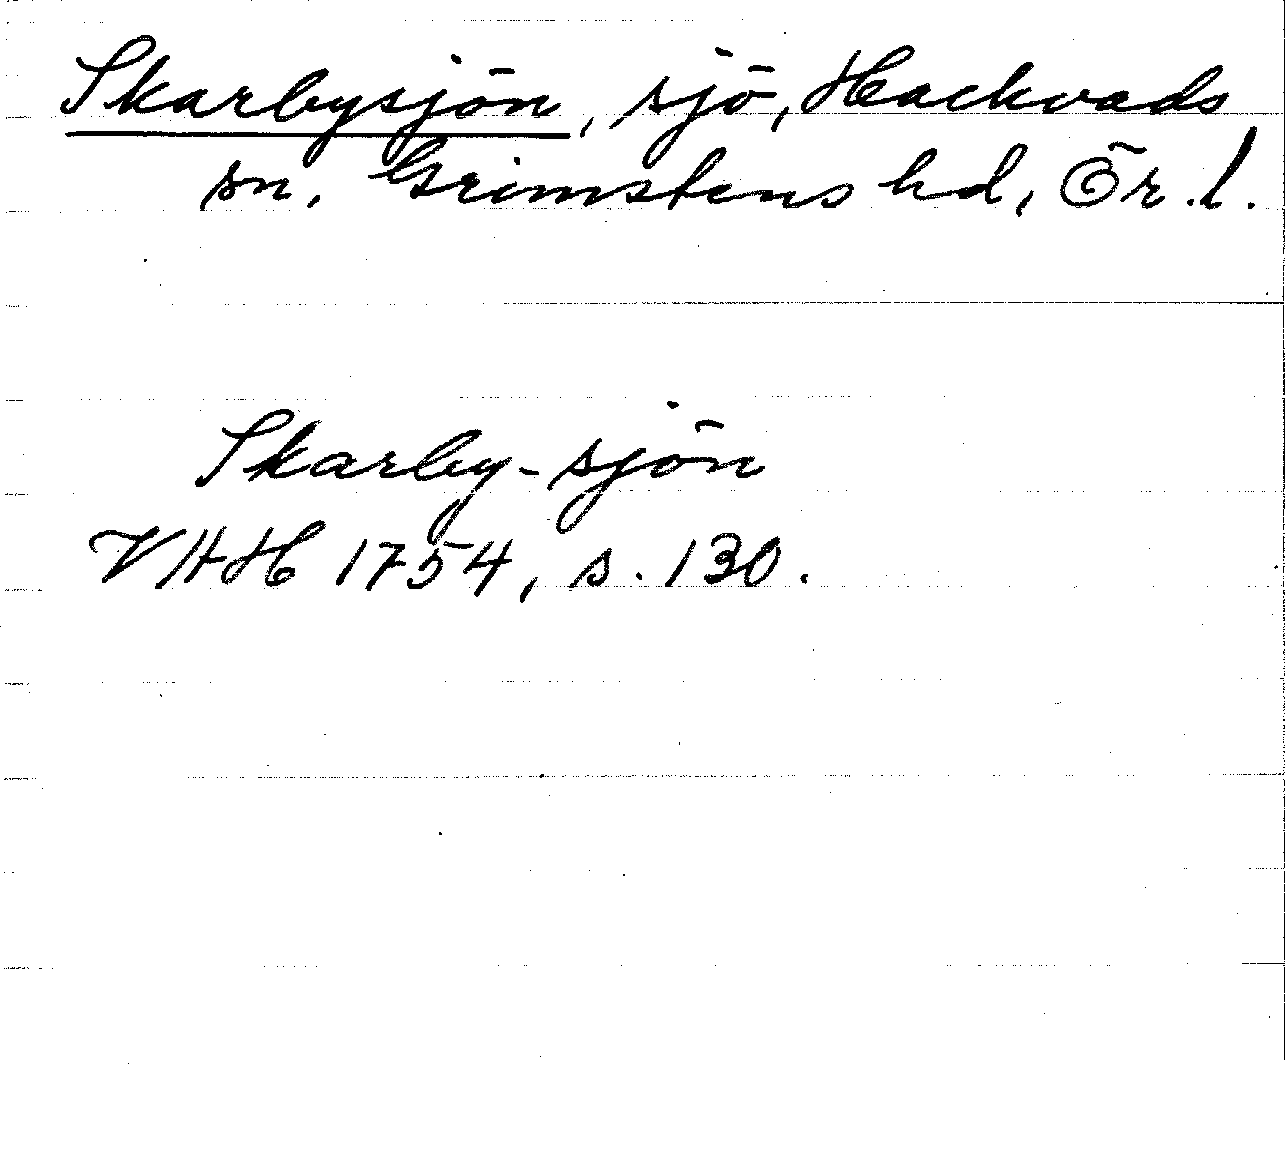 Skarbysjön, sjö, Hackvads
sn, Grimstens hd, Ör. l.
Skarby-sjön
VHH 1754, s. 130.